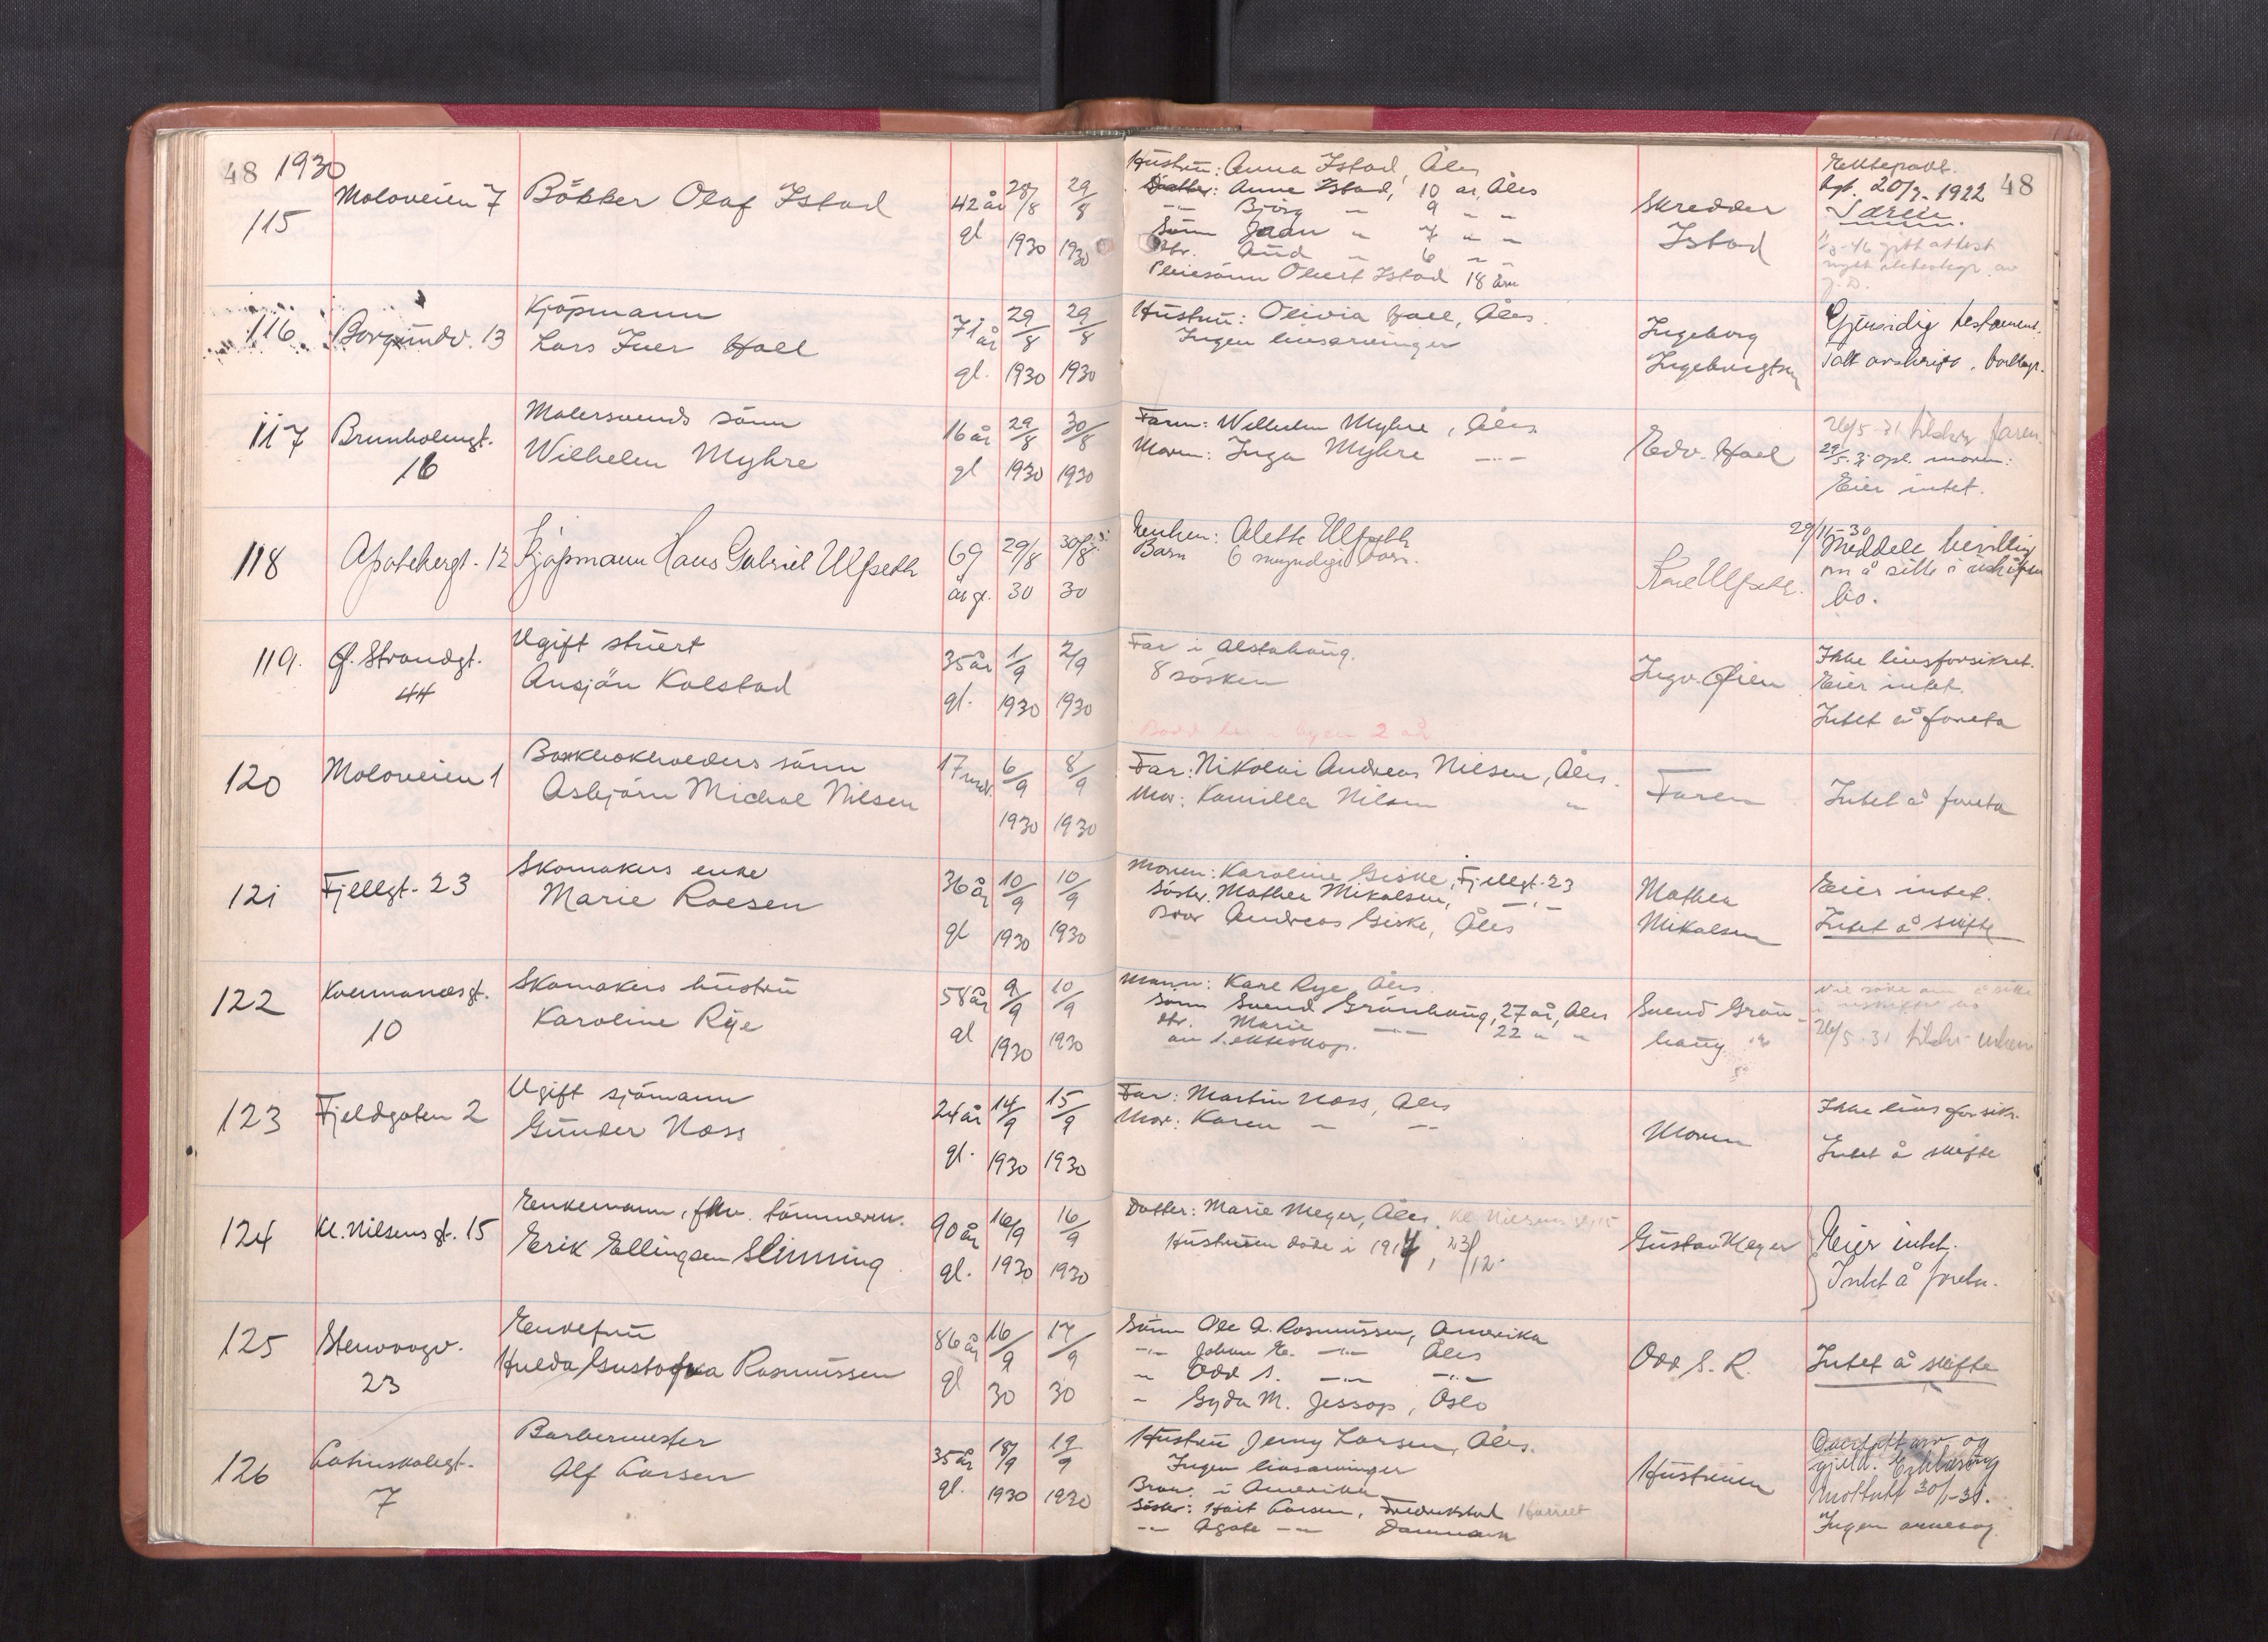 48 1930
115
Moloveien 7
Bökker Olaf Istad
42 år gl
28/8 1930
29/8 1930
Hustru: Anna Istad, Åles
Datter: Anna Istad, 10 år, Åles
-"- Björg - 9 - -
Sönn - 7 " -
Dtr. Aud - 6 - -
Pleiesönn Olbert Istad 18 år
Skredder
Istad
Ektepakt.
tgl. 20/7-1922
Særeie.
48
116
Borgundv. 13
Kjöpmann
Lars Iver Hoel
71 år gl.
29/8 1930
29/8 1930
Hustru: Olivia Hoel, Åles.
Ingen livsarvinger
Ingeborg
Ingebrigtsen
Gjensidig testament.
117
Brunholmgt.
16
Malersvends sönn
Wilhelm Myhre
16 år gl
29/8 1930
30/8 1930
Faren: Wilhelm Myhre, Åles.
Moren: Inga Myhre -"-
Edv. Hoel
26/5-31 faren.
29/5-31 opl. moren:
Eier intet.
118
Apotekergt. 12
Kjöpmann Hans Gabriel Ulfseth
69 år gl.
29/8 30
30/8 30
Enken: Alette Ulfseth
Barn 6 myndige barn.
Karl Ulfseth.
29/11-30
Meddelt bevilling
om å sitte i uskiftet
bo.
119.
Ø. Strandgt.
44
Ugift stuert
Ansjön Kolstad
35 år gl.
1/9 1930
2/9 1930
Far i Alstahaug.
8 sösken
Bodd her i byen 2 år
Ingv. Øien
Ikke livsforsikret.
Eier intet.
Intet å foreta
120
Moloveien 1
sönn
Asbjörn Michal Nilsen
17 mdr.
6/9 1930
8/9 1930
Far: Nikolai Andreas Nilsen, Åles.
Mor: Kamilla Nilsen "
Faren
Intet å foreta
121
Fjellgt. 23
Skomakers enke
Marie Roesen
36 år gl
10/9 1930
10/9 1930
Moren: Karoline Giske, Fjellgt. 23
Söster. Mathea Mikalsen, -"-
Bror Andreas Giske, Åles
Mathea
Mikalsen
Eier intet.
Intet å skifte
122
Kolumanosgt.
10
Skomakers hustru
Karoline Rye
58 år gl
9/9 1930
10/9 1930
Mann: Karl Rye, Åles.
Sönn Svend Grönhaug, 27 år, Åles
dtr. Marie -"- 22 " "
av 1. ekteskap.
Svend Grön-
haug
Vil söke om å sitte
i uskiftet bo
26/5-31
123
Fjeldgaten 2
Ugift sjömann
Günder Noss
24 år gl.
14/9 1930
15/9 1930
Far: Martin Noss, Åles
Mor: Karen - -"-
Moren
Ikke livsforsikr.
Intet å skifte
124
Kl. Nilsensgt. 15
Enkemann, fhv. tömmerm.
Erik Ellingsen Slinning
90 år gl.
16/9 1930
16/9 1930
Datter: Marie Meyer, Åles, Kl. Nilsens gt 15
Hustruen döde i 1914, 23/12.
Gustav Meyer
Eier intet.
Intet å foreta.
125
Stenvaagv.
23
Enkefru
Hulda Gustafva Rasmussen
86 år gl
16/9 30
17/9 30
Sönn Ole A. Rasmussen, Amerika
-"- Johan E. -"- Åles
" Odd S. -"- -"-
- Gyda M. Jessop, Oslo
Odd S. R.
Intet å skifte
126
Latinskolegt.
7
Barbermester
Alf Larsen
35 år gl.
18/9 1930
19/9 1930
Hustru Jenny Larsen, Åles.
Ingen livsarvinger
Bror. i Amerika
Söster: Larsen, Fredrikstad Harriet
-"- Agate -"- Danmark
Hustruen
Overtatt arv og
gjeld. Erklæring
mottatt 30/1-31.
Ingen